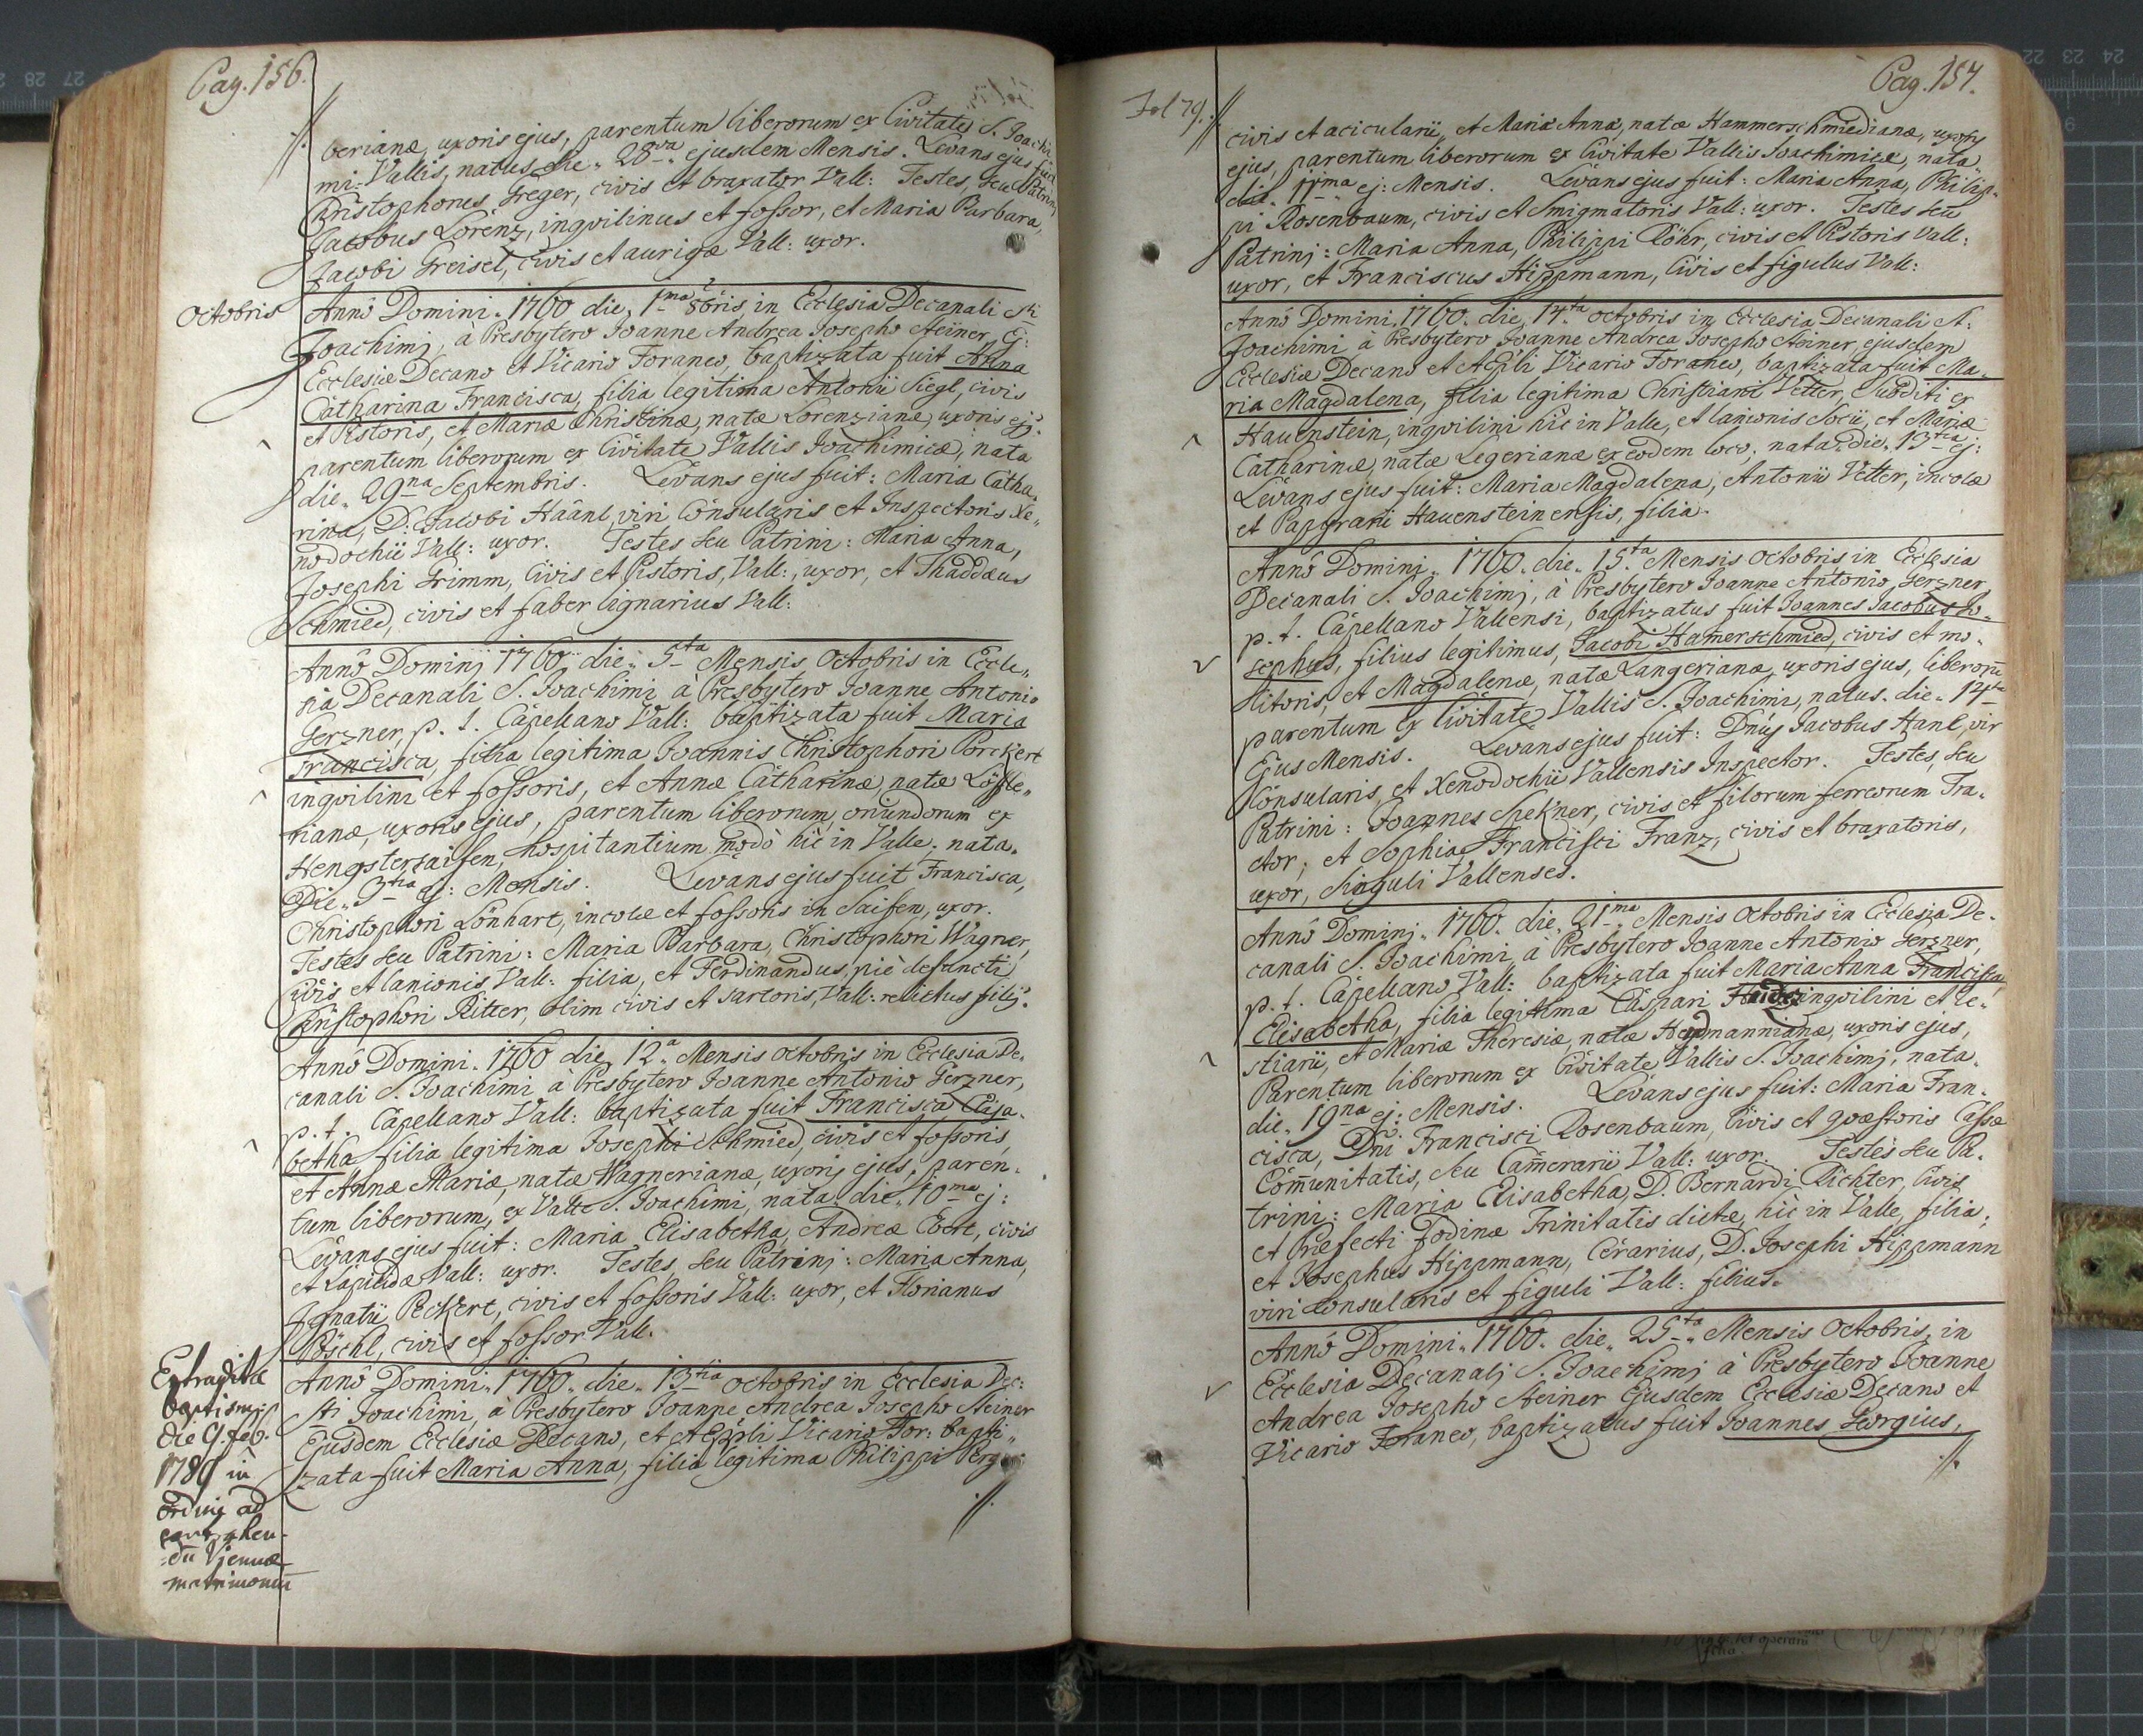 Pag. 156.
berianæ, uxoris ejus, parentum liberorum ex Civitate S. Joachi
mi-Vallis, natus die. 28va. ejusdem Mensis. Levans ejus fuit
Christophorus Greger, civis et braxator Vall: Testes, seu Patrini
Jacobus Lorenz, inqvilinus et fossor, et Maria Barbara,
Jacobi Greisel, civis et aurigæ Vall: uxor.
Octobris
Annô Domini. 1760 die, 1ma 8bris, in Ecclesia Decanali Sti
Joachimi, à Presbytero Joanne Andrea Josepho Steiner Ej:
Ecclesiæ Decano et Vicario Foraneo, baptizata fuit Anna
Catharina Francisca, filia legitima Antonii Siegl, civis
et Pistoris, et Mariæ Christinæ, natæ Lorenzianæ, uxoris ejg.
parentum liberorum ex Civitate Vallis Joachimicæ, nata
die. 29na Septembris. Levans ejus fuit: Maria Catha,,
rina, D. Jacobi Häänl, viri Consularis et Inspectoris Xe,,
nodochii Vall: uxor. Testes seu Patrini: Maria Anna,
Josephi Grimm, Civis et Pistoris, Vall:, uxor, et Thaddæus
Schmied, civis et faber lignarius Vall:
Annô Dominj 1760. die. 5ta Mensis Octobris in Eccle,,
sia Decanali S. Joachimi à Presbytero Joanne Antonio
Gerzner, p. t. Capellano Vall: baptizata fuit Maria
Francisca, filia legitima Joannis Christophori Porckert
inqvilini et fossoris, et Annæ Catharinæ, natæ Löffle,,
rianæ, uxoris ejus, parentum liberorum, oriundorum ex
Hengstersaifen, hospitantium modò hìc in Valle, nata.
Die. 3tia ej: Mensis. Levans ejus fuit Francisca,
Christophori Lönhart, incolæ et fossoris in Saifen, uxor.
Testes seu Patrini: Maria Barbara, Christophori Wagner,
civis et lanionis Vall: filia, et Ferdinandus, piè defuncti
Christophori Ritter, olim civis et sartoris, Vall: relictus filj.
Annô Domini. 1760 die, 12a. Mensis Octobris in Ecclesia De,
canali S. Joachimi à Presbytero Joanne Antonio Gerzner,
p. t. Capellano Vall: baptizata fuit Francisca Elisa.
betha filia legitima Josephi Schmied, civis et fossoris,
et Annæ Mariæ, natæ Wagnerianæ, uxoris ejus, paren.
tum liberorum, ex Valle S. Joachimi, nata die. 10ma ej:
Levans ejus fuit: Maria Elisabetha, Andreæ Ebert, civis
et Lapicidæ Vall: uxor. Testes, seu Patrinj: Maria Anna,
Ignatii Peckert, civis et fossoris Vall: uxor, et Florianus
Pöschl, civis et fossor Vall.
Extradita
baptism:
die 9. feb.
1789 in
ordine ad
Viennæ
matrimonium
Annô Domini. 1760. die. 13tia Octobris in Ecclesia Dec:
Sti Joachimi, à Presbytero Joanne Andrea Josepho Steiner
Ejusdem Ecclesiæ Decano, et AEpli Vicario For: bapti,,
zata fuit Maria Anna, filia legitima Philippi
·//.
Fol 79.
Pag. 157.
civis et acicularii, et Mariæ Annæ, natæ Hammerschmiedianæ, uxoris
ejus, parentum liberorum ex Civitate Vallis Joachimicæ, nata
die. 11ma ej: Mensis. Levans ejus fuit: Maria Anna, Philip,,
pi Rosenbaum, civis et Smigmatoris Vall: uxor. Testes seu
Patrinj: Maria Anna, Philippi Röhr, civis et Pistoris Vall:
uxor, et Franciscus Hippmann, Civis et figulus Vall:
Annô Domini. 1760. die, 14ta Octobris in Ecclesia Decanali S.
Joachimi à Presbytero Joanne Andrea Josepho Steiner, ejusdem
Ecclesiæ Decano et AEpli Vicario Foraneo, baptizata fuit Ma,,
ria Magdalena, filia legitima Christiani Vetter, Subditi ex
Hauenstein, inqvilini hìc in Valle, et lanionis Socii, et Mariæ
Catharinæ, natæ Legerianæ ex eodem loco, nata die. 13tia ej:
Levans ejus fuit: Maria Magdalena, Antonii Vetter, incolæ
et Papyrarii Hauensteinensis, filia.
Annô Dominj. 1760. die. 15ta Mensis Octobris in Ecclesia
Decanali S. Joachimj, à Presbytero Joanne Antonio Gerzner
p. t. Capellano Vallensi, baptizatus fuit Joannes Jacobus Jo,,
sephus, filius legitimus, Jacobi Hamerschmied, civis et mo,,
litoris, et Magdalenæ, natæ Langerianæ, uxoris ejus, liberorũ
parentum ex Civitate Vallis S. Joachimi, natus. die. 14ta
Ejus Mensis. Levans ejus fuit: Dnus Jacobus Hanl, vir
Consularis, et Xenodochii Vallensis Inspector. Testes, seu
Patrini: Joannes Spekner, civis et filorum ferreorum Tra,,
ctor; et Sophia, Francisci Franz, civis et braxatoris,
uxor, singuli Vallenses.
Annô Dominj. 1760. die, 21ma. Mensis Octobris in Ecclesia De.
canali S. Joachimi, à Presbytero Joanne Antonio Gerzner,
p. t. Capellano Vall: baptizata fuit Maria Anna Francisca
Elisabetha, filia legitima Caspari inqvilini et Ve,,
stiarii, et Mariæ Theresiæ, natæ Heydmannianæ, uxoris ejus,
Parentum liberorum ex Civitate Vallis S. Joachimj, nata.
die. 19na ej: Mensis. Levans ejus fuit: Maria Fran,,
cisca, Dni Francisci Rosenbaum, Civis et qvæstoris Cassæ
Com̃unitatis, seu Camerarii Vall: uxor. Testes seu Pa.
trini: Maria Elisabetha, D. Bernardi Richter, Civis
et Præfecti fodinæ Trinitatis dictæ, hìc in Valle, filia;
et Josephus Hippmann, Cerarius, D. Josephi Hippmann
viri Consularis et figuli Vall: filius.
Annô Domini. 1760. die. 25ta. Mensis Octobris, in
Ecclesia Decanalj S. Joachimj à Presbytero Joanne
Andrea Josepho Steiner Ejusdem Ecclesiæ Decano et
Vicario Foraneo, baptizatus fuit Joannes Georgius,
·//.